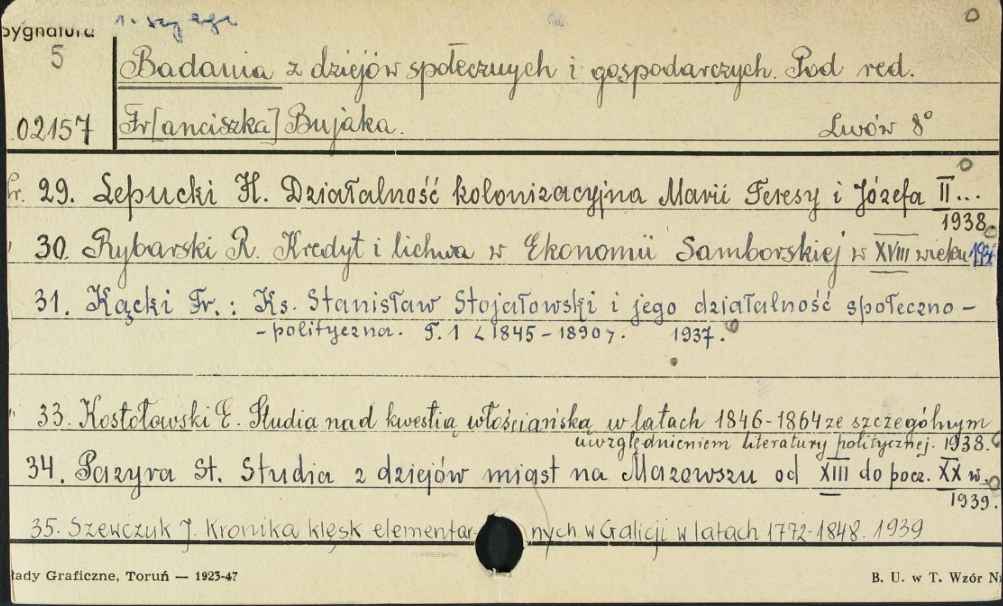 Sygnatura 1. egz
5 Badania z dziejów społecznych i gospodarczych. Pod red.
02157 Fr[anciszka] Bujaka. Lwów 8°
29. Lepucki H. Działalność kolonizacyjna Marii Teresy i Józefa II...
1938
30. Rybarski R. Kredyt i lichwa w Ekonomii Samborskiej w XVIII wieku
31. Kącki Fr.: Ks. Stanisław Stojałowski i jego działalność społeczno-
-polityczna. T. 1 <1845-1890>. 1937.
33. Kostołowski E. Studia nad kwestią włościańską w latach 1846-1864 ze szczególnym
uwzględnieniem literatury politycznej. 1938.
34. Pazyra St. Studia z dziejów miast na Mazowszu od XIII do pocz. XX w.
1939.
35. Szewczuk J. Kronika klęsk elementarnych w Galicji w latach 1772-1848. 1939
łady Graficzne, Toruń — 1923-47 B. U. w T. Wzór Nr